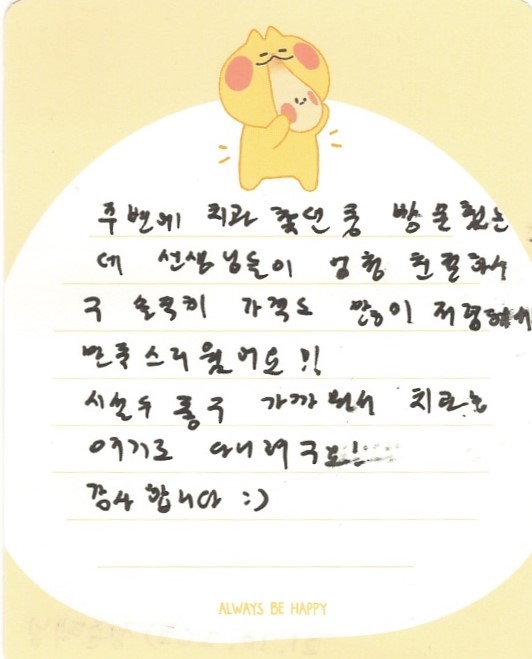 주변에 치과 찾던 중 방문했는
데 선생님들이 엄청 친절하시
구 솔직히 가격도 많이 저렴해서
만족스러웠어요!!
시설두 좋구 가까워서 치과는
여기로 다니려구요!!
감사합니다 :)
ALWAYS BE HAPPY